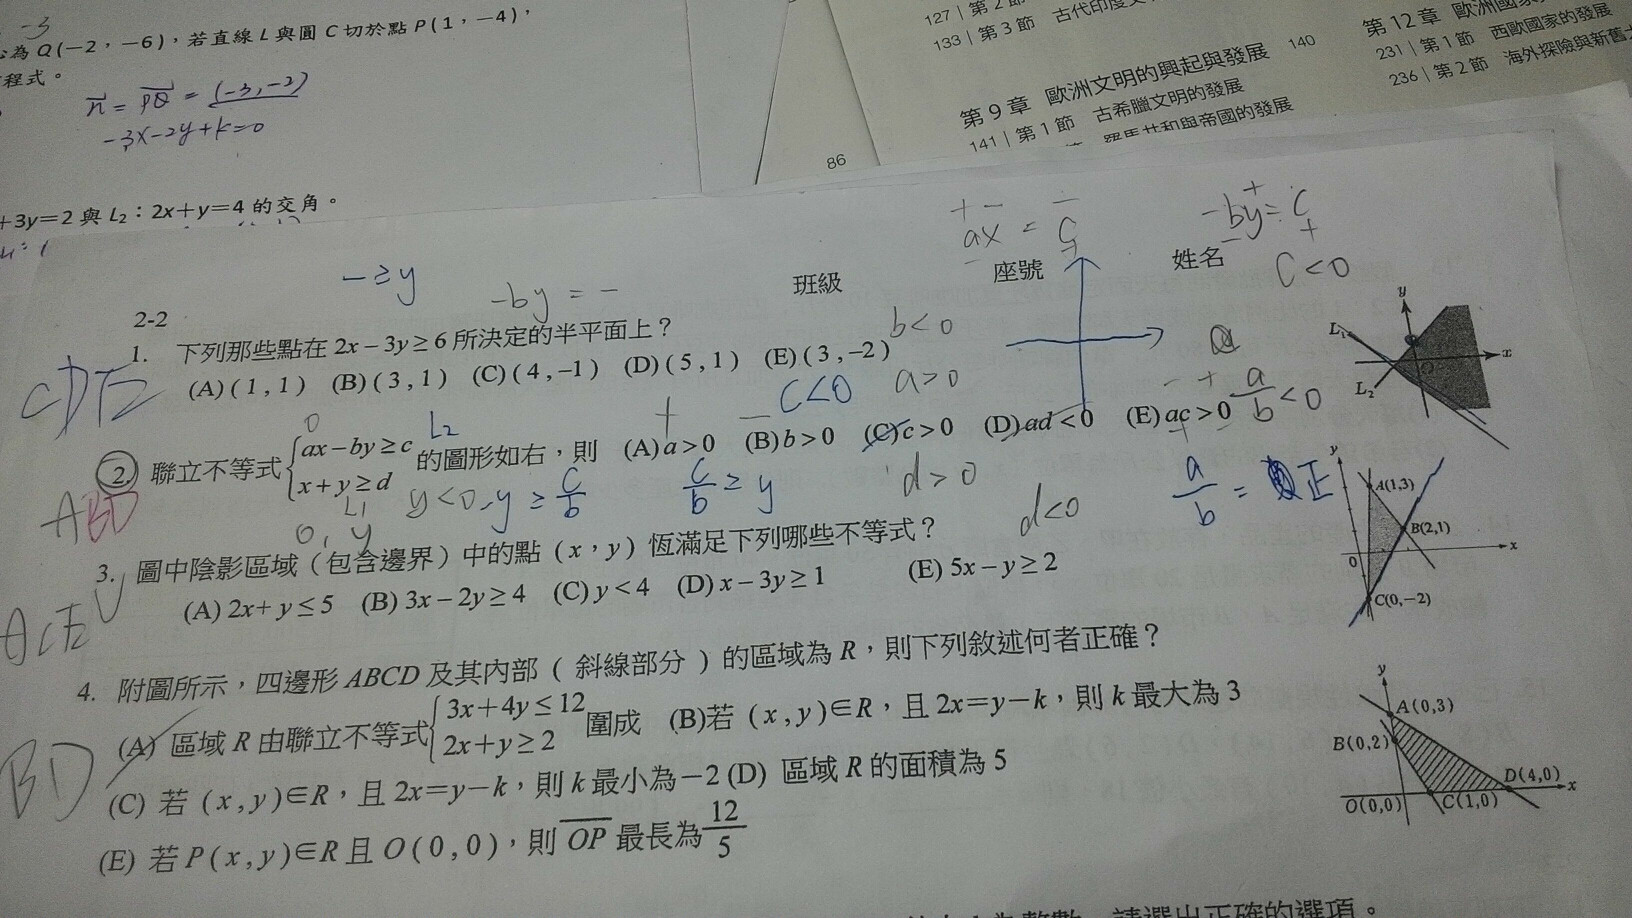 -3
心為 Q(−2，−6)，若直線 L 與圓 C 切於點 P(1，−4)，
程式。
n = PQ = (-3,-2)
-3x-2y+k=0
+3y=2 與 L₂：2x+y=4 的交角。
127 | 第 2 節
133 | 第 3 節 古代印度文
86
第 9 章 歐洲文明的興起與發展
141 | 第 1 節 古希臘文明的發展
羅馬共和與帝國的發展
140
第 12 章 歐洲國家
231 | 第 1 節 西歐國家的發展
236 | 第 2 節 海外探險與新舊大
+ − −
ax = c
+
−
+
-by = c
− +
c<0
- ≥ y
-by = -
班級 座號 姓名
2-2
1. 下列那些點在 2x−3y≥6 所決定的半平面上？
(A)(1,1) (B)(3,1) (C)(4,−1) (D)(5,1) (E)(3,−2)
CDE
b<0
a>0
c<0
a/b<0
2. 聯立不等式{ax−by≥c x+y≥d 的圖形如右，則 (A)a>0 (B)b>0 (C)c>0 (D)ad<0 (E)ac>0
L2
L1
ABD
0, y
y<0
-y ≥ c/b
c/b ≥ y
d>0
d<0
a/b = 正
y
L₁
L₂
O
x
3. 圖中陰影區域（包含邊界）中的點 (x，y) 恆滿足下列哪些不等式？
(A) 2x+y≤5 (B) 3x−2y≥4 (C) y<4 (D) x−3y≥1 (E) 5x−y≥2
ACE
y
A(1,3)
B(2,1)
0
x
C(0,−2)
4. 附圖所示，四邊形 ABCD 及其內部（斜線部分）的區域為 R，則下列敘述何者正確？
(A) 區域 R 由聯立不等式{3x+4y≤12 2x+y≥2 圍成 (B)若 (x,y)∈R，且 2x=y−k，則 k 最大為 3
(C) 若 (x,y)∈R，且 2x=y−k，則 k 最小為−2 (D) 區域 R 的面積為 5
(E) 若 P(x,y)∈R 且 O(0,0)，則 OP 最長為 12/5
BD
y
A(0,3)
B(0,2)
D(4,0)
x
O(0,0)
C(1,0)
為整數，請選出正確的選項。